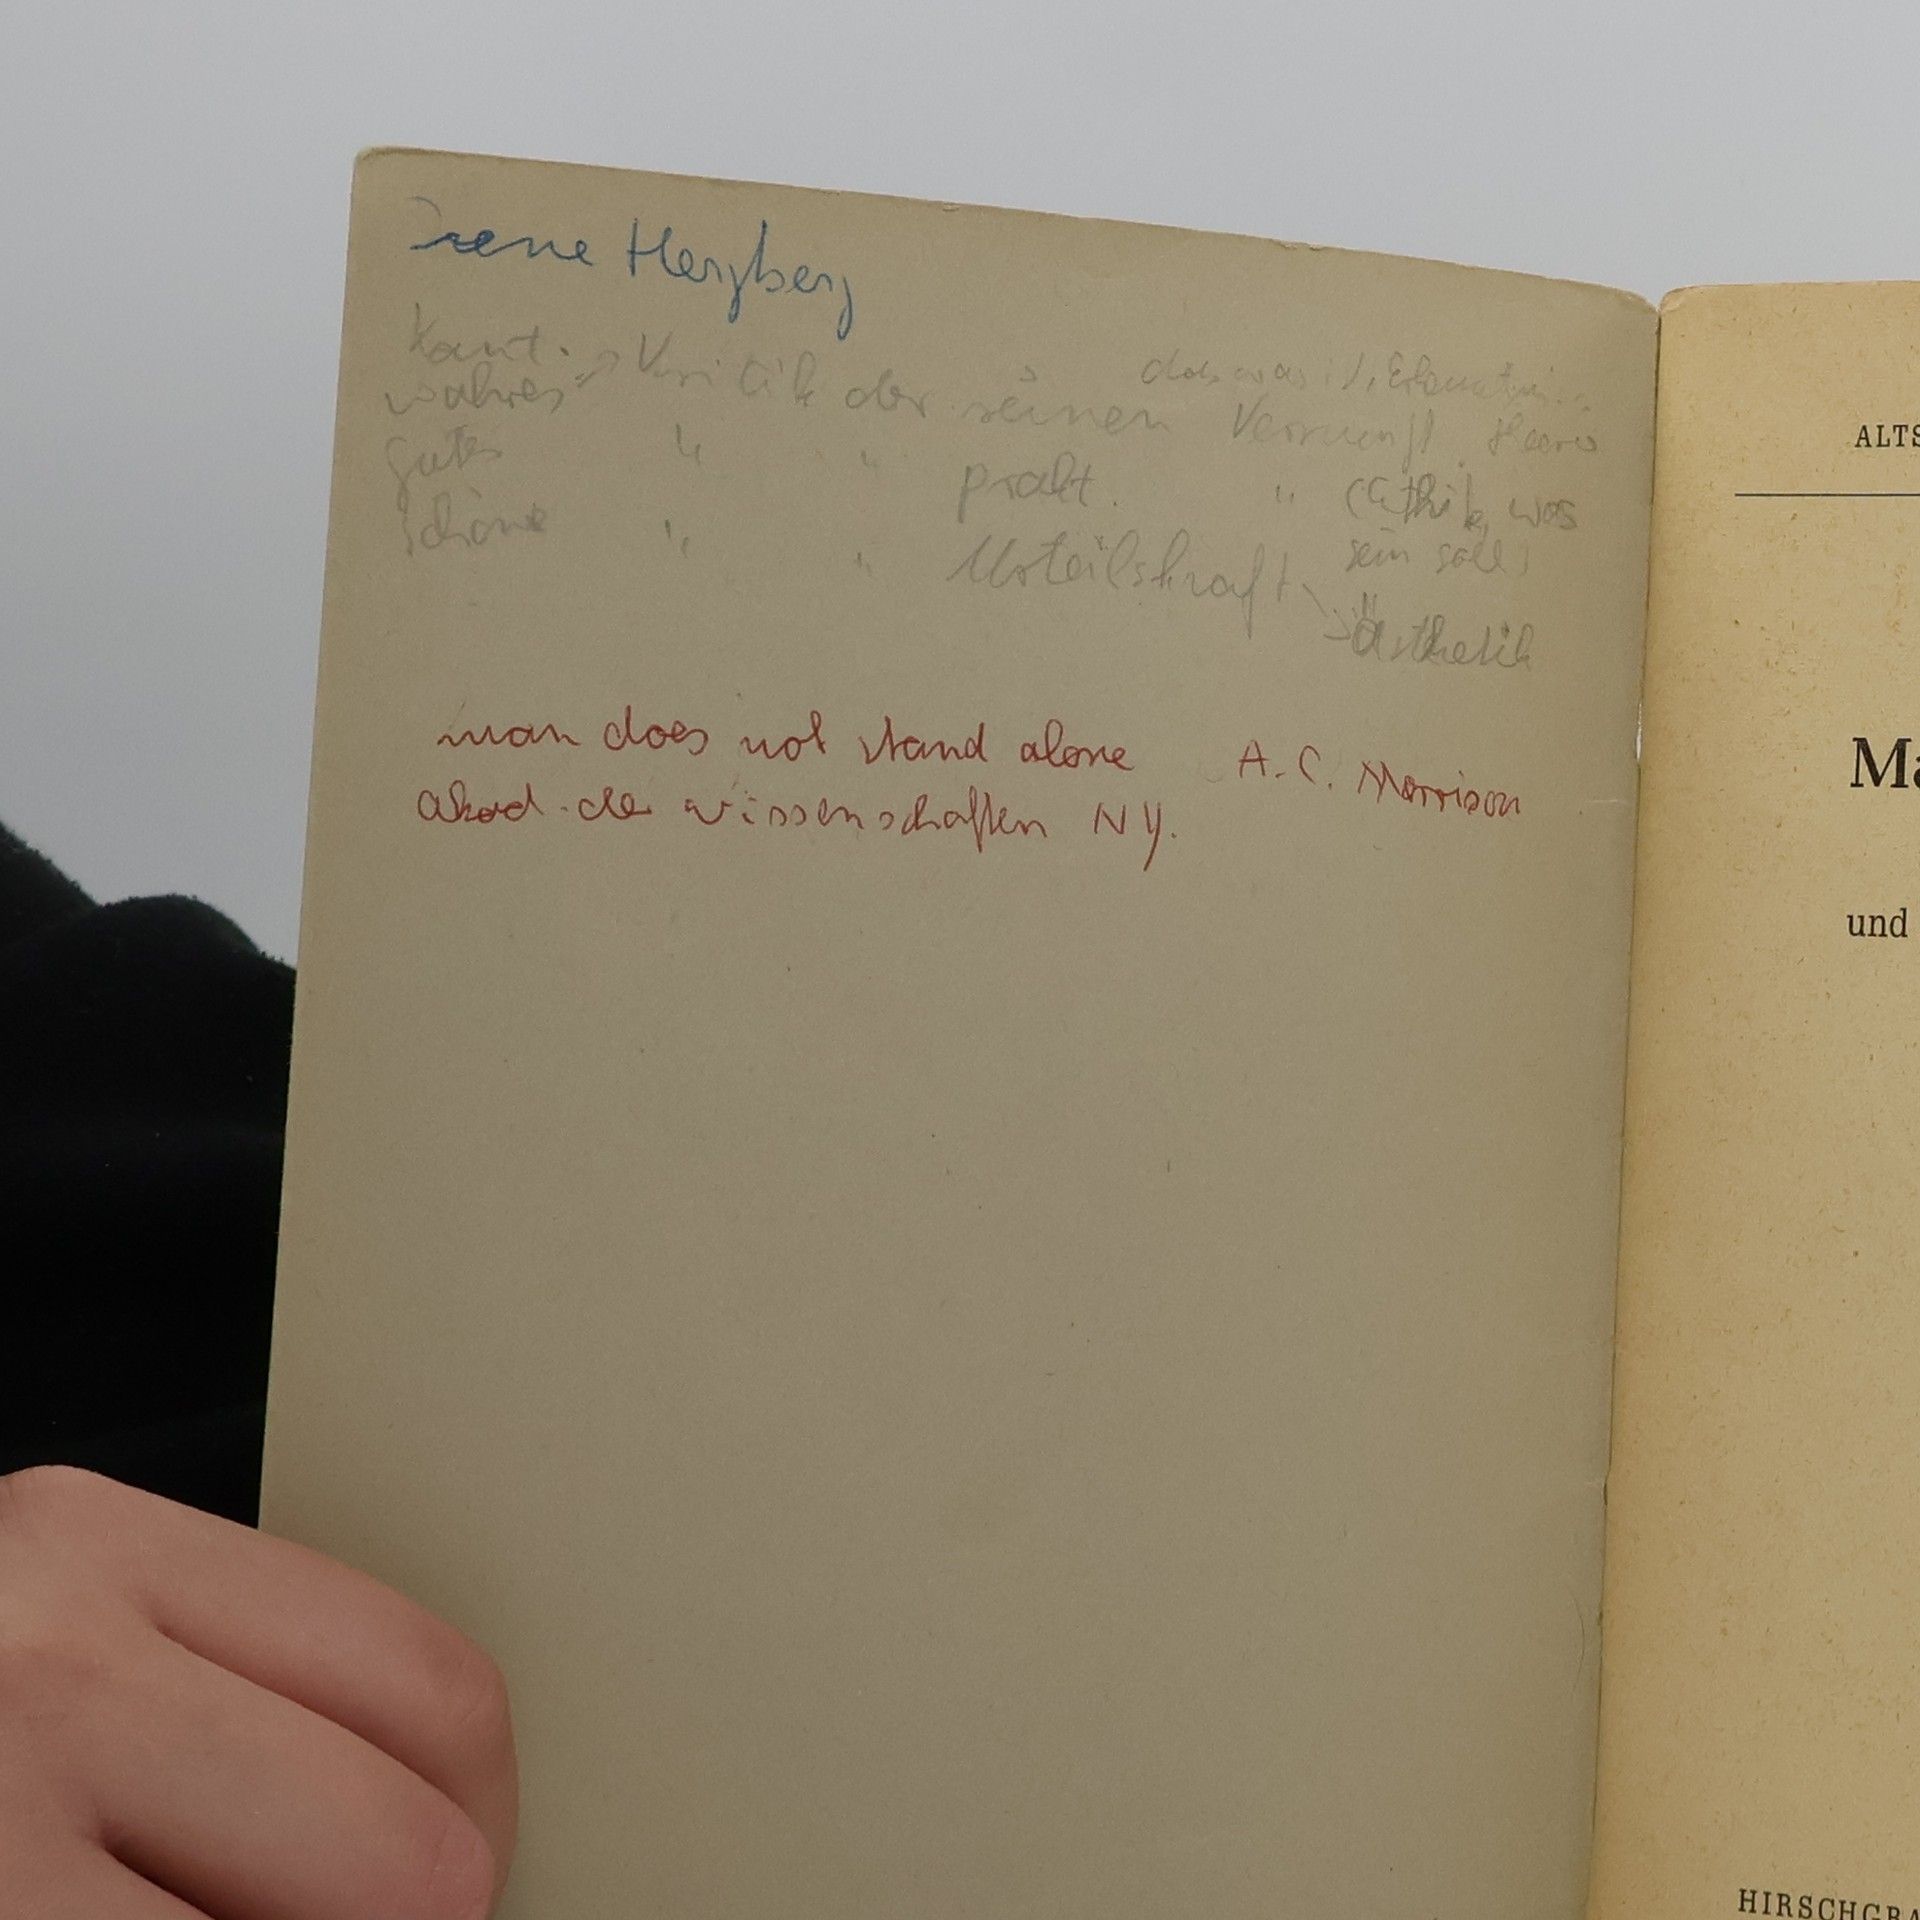 Irene Herzberg
Kant.
wahres → Kritik der reinen Vernunft
das was ist, Erkenntnis..
gutes " " prakt. " (Ethik, was
sein soll)
schöne " " Urteilskraft → Ästhetik
man does not stand alone A. C. Morrison
Akad. der wissenschaften NY.
ALTS
Ma
und
HIRSCHGRA